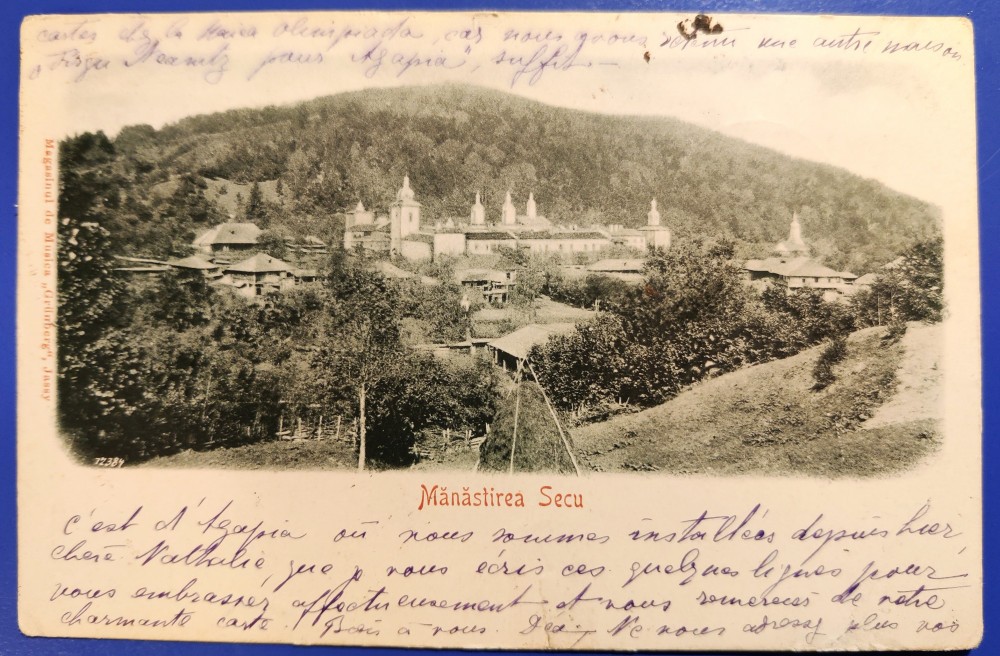 cartes de la Maica Olimpiada, car nous avons retenu une autre maison
"Târgu Neamtz pour Agapia", suffit —
Magasinul de Musica „Grünberg", Jassy
12384
Mănăstirea Secu
c'est d'Agapia où nous sommes installées depuis hier,
chère Nathalie, que je vous écris ces quelques lignes pour
vous embrasser affectueusement et vous remercier de votre
charmante carte. Bons à vous. Ne nous adressez plus vos